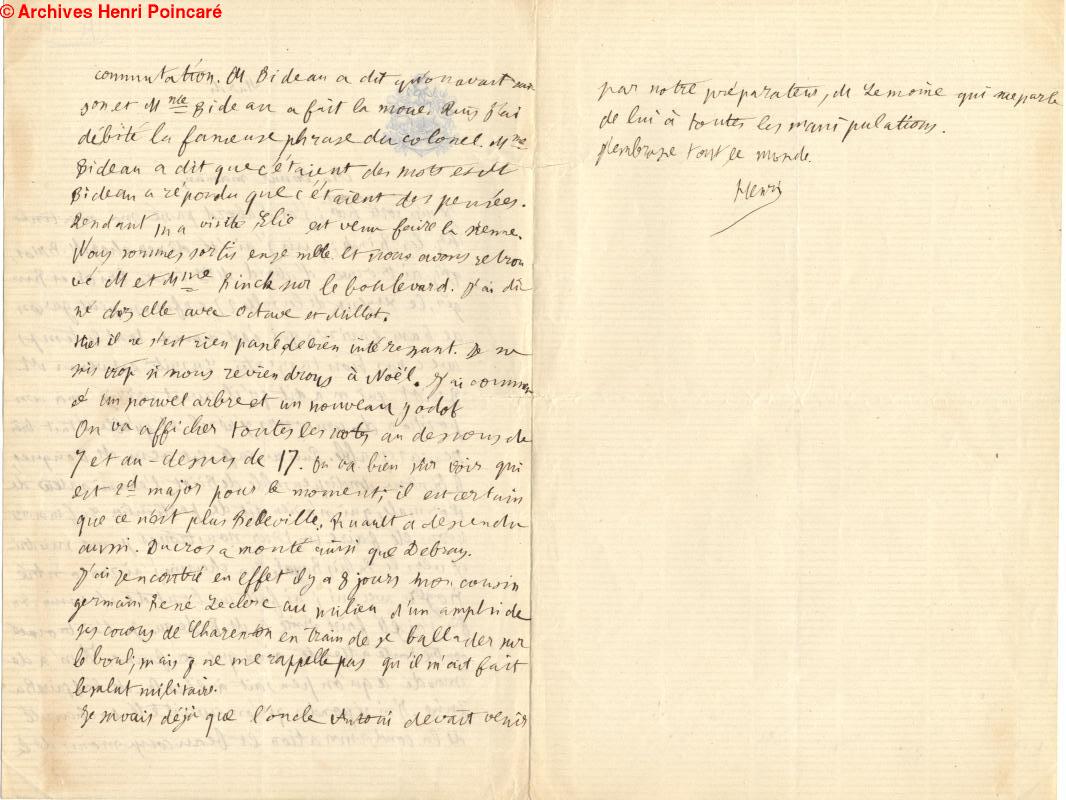 © Archives Henri Poincaré
commutation. M. Bideau a dit qu'on avait rai
son et Mme Bideau a fait la moue. Puis j'ai
débité la fameuse phrase du colonel. Mme
Bideau a dit que c'étaient des mots et M
Bideau a répondu que c'étaient des pensées.
Pendant ma visite Elie est venu faire la sienne.
Nous sommes sortis ensemble et nous avons retrou
vé M et Mme Rinck sur le boulevard. J'ai dî
né chez elle avec Octave et Millot.
Hier il ne s'est rien passé de bien intéressant. Je ne
sais trop si nous reviendrons à Noël. J'ai commen
cé un nouvel arbre et un nouveau godot
On va afficher toutes les notes au dessous de
7 et au-dessus de 17. On va bien sur voir qui
est 2d major pour le moment; il est certain
que ce n'est plus Belleville, Ruault a descendu
aussi. Ducros a monté ainsi que Debray.
J'ai rencontré en effet il y a 8 jours mon cousin
germain René Leclerc au milieu d'un amphi de
ses cocons de Charenton en train de se ballader sur
le boul; mais je ne me rappelle pas qu'il m'ait fait
le salut militaire.
Je savais déjà que l'oncle Antoni devait venir
par notre préparateur, M Lemoine qui me parle
de lui à toutes les manipulations.
J'embrasse tout le monde.
Henri